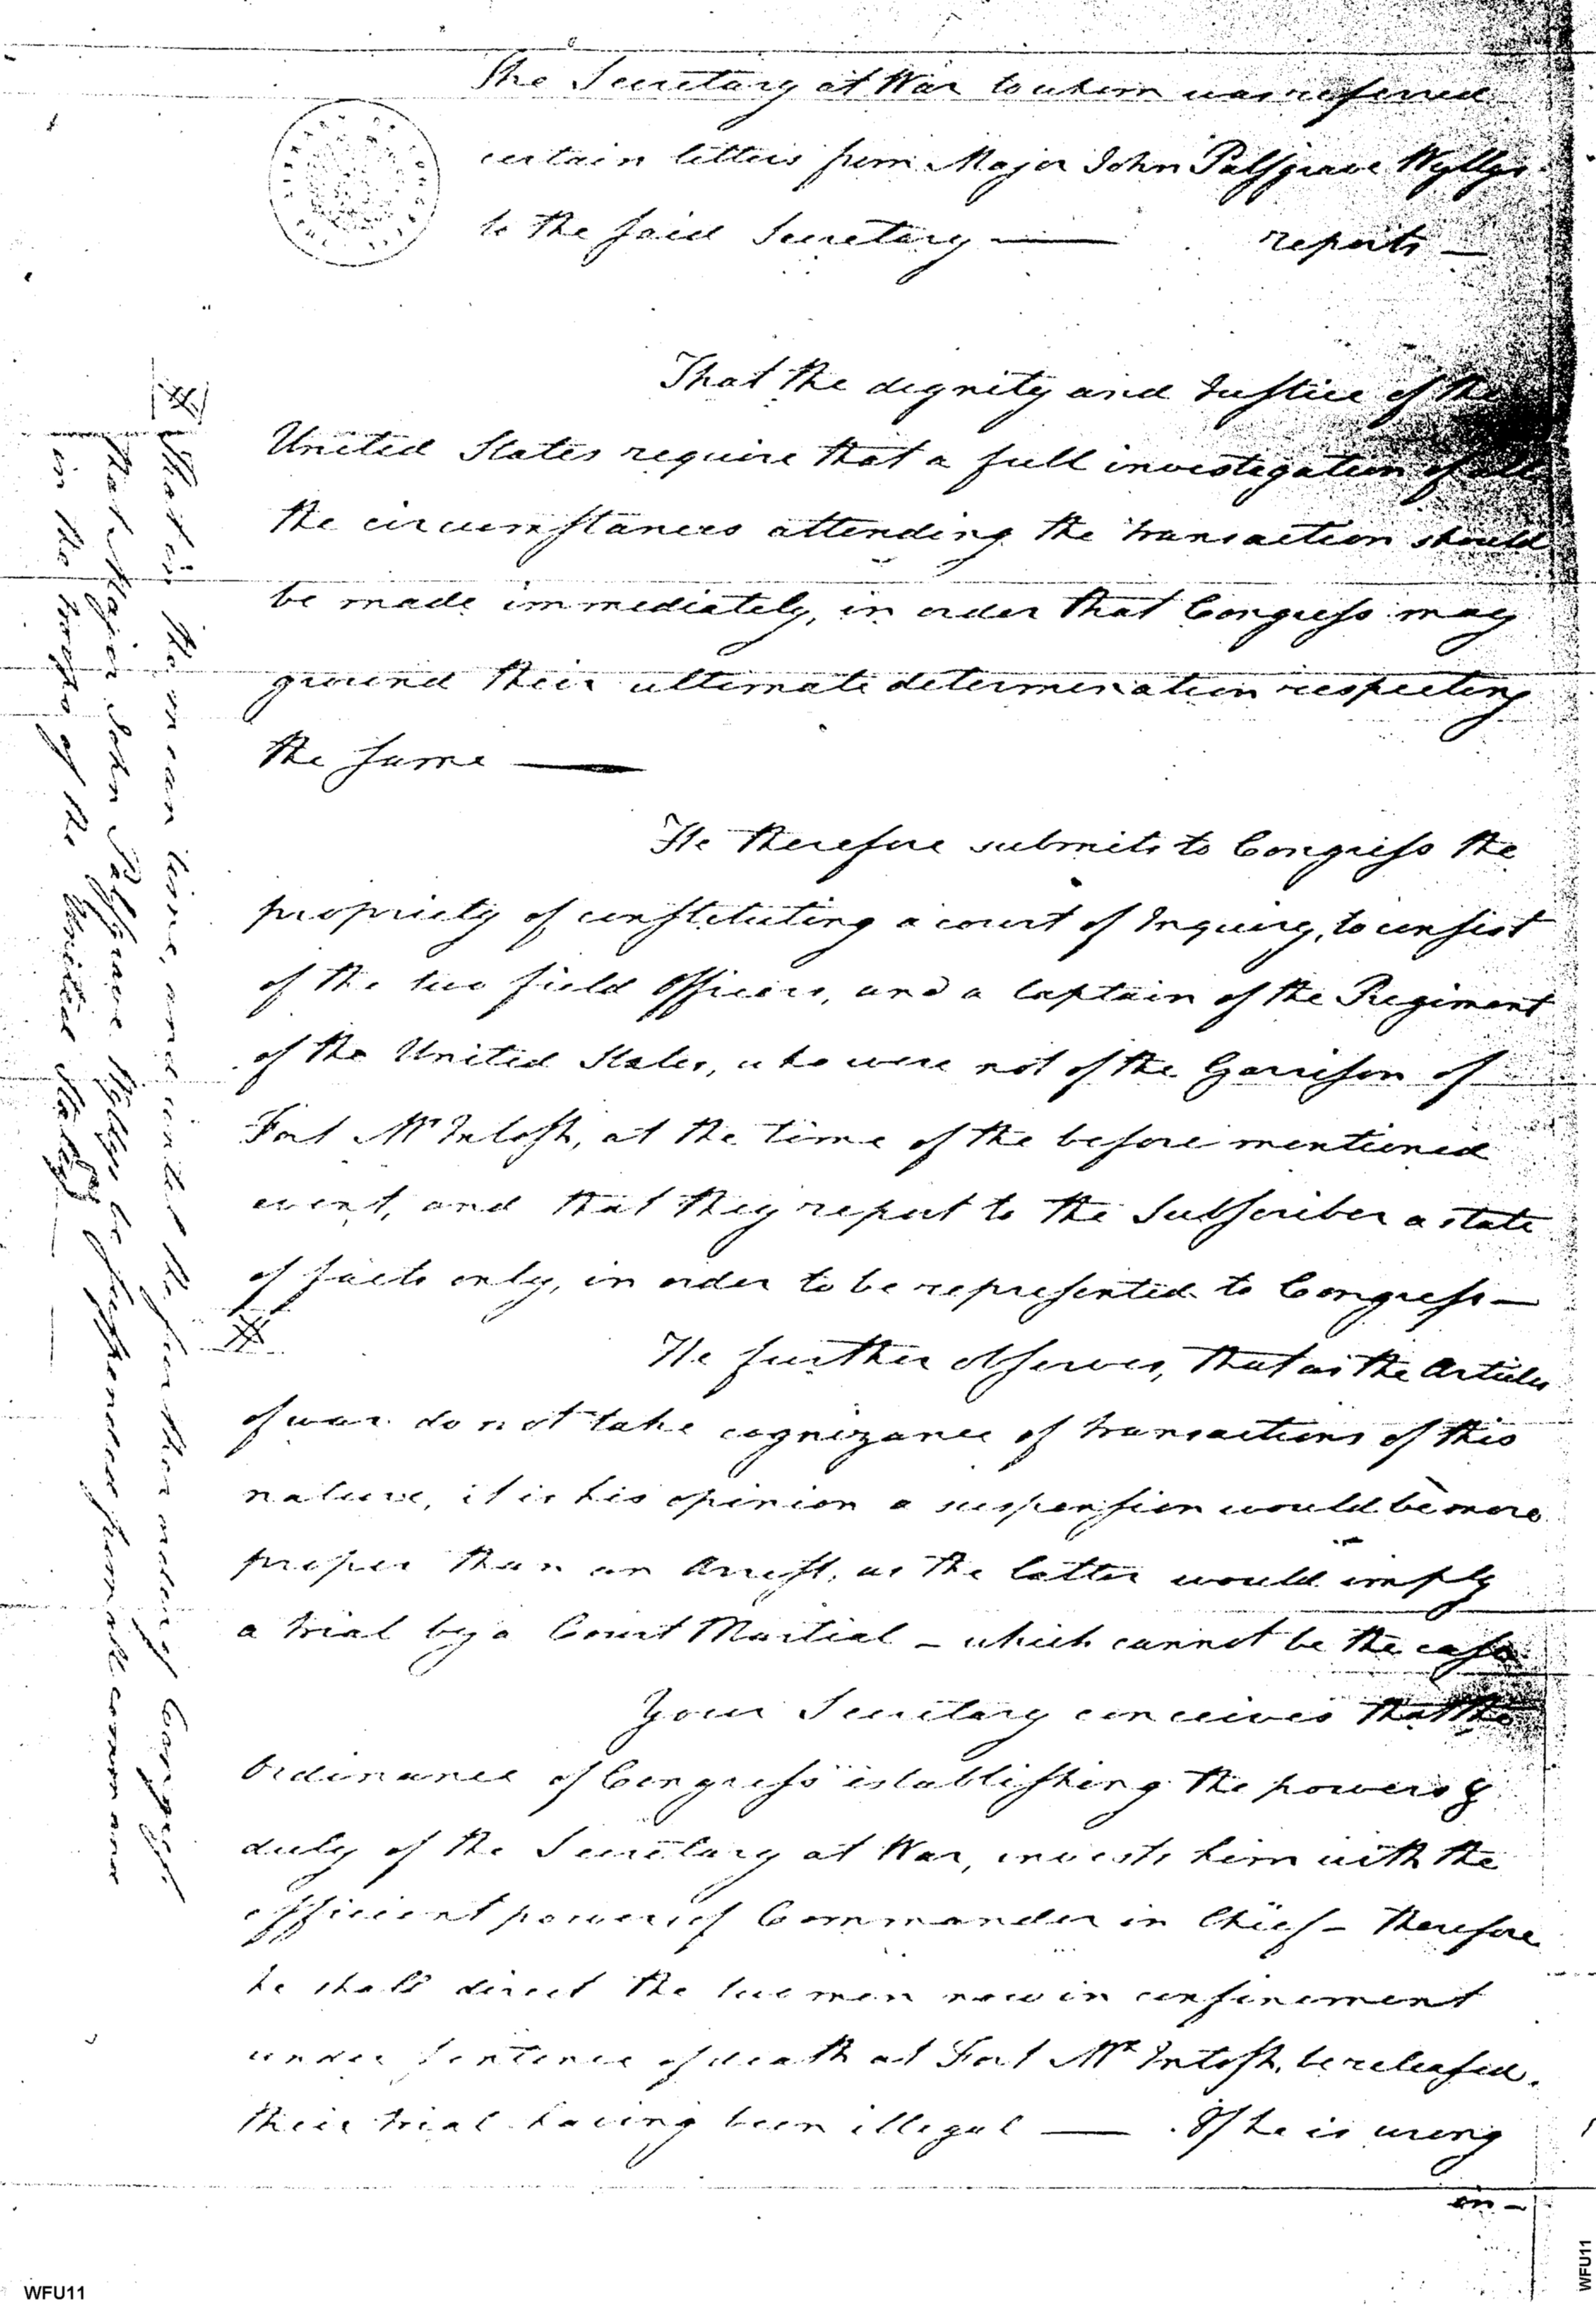 The Secretary at War to whom was referred
certain letters from Major John Palsgrave Wyllys
to the said Secretary — reports —
That the dignity and Justice of the
United States require that a full investigation of all
the circumstances attending the transaction should
be made immediately, in order that Congress may
ground their ultimate determination respecting
the same —
He therefore submits to Congress the
propriety of constituting a court of Inquiry, to consist
of the two field Officers, and a Captain of the Regiment
of the United States, who were not of the Garrison of
Fort McIntosh, at the time of the before mentioned
event, and that they report to the Subscriber a state
of facts only, in order to be represented to Congress —
#
He further observes, that as the Articles
of war do not take cognizance of transactions of this
nature, it is his opinion a suspension would be more
proper than an Arrest, as the latter would imply
a trial by a Court Martial – which cannot be the case
Your Secretary conceives that the
Ordinance of Congress establishing the powers &
duty of the Secretary at War, invests him with the
efficient powers of Commander in Chief – Therefore
he shall direct the two men now in confinement
under sentence of death at Fort McIntosh, be released,
their trial having been illegal — If he is wrong
in –
#
that in the mean time, and until the further order of Congress
that Major John Palsgrave Wyllys be suspended from all command
in the troops of the United States —
WFU11
WFU11